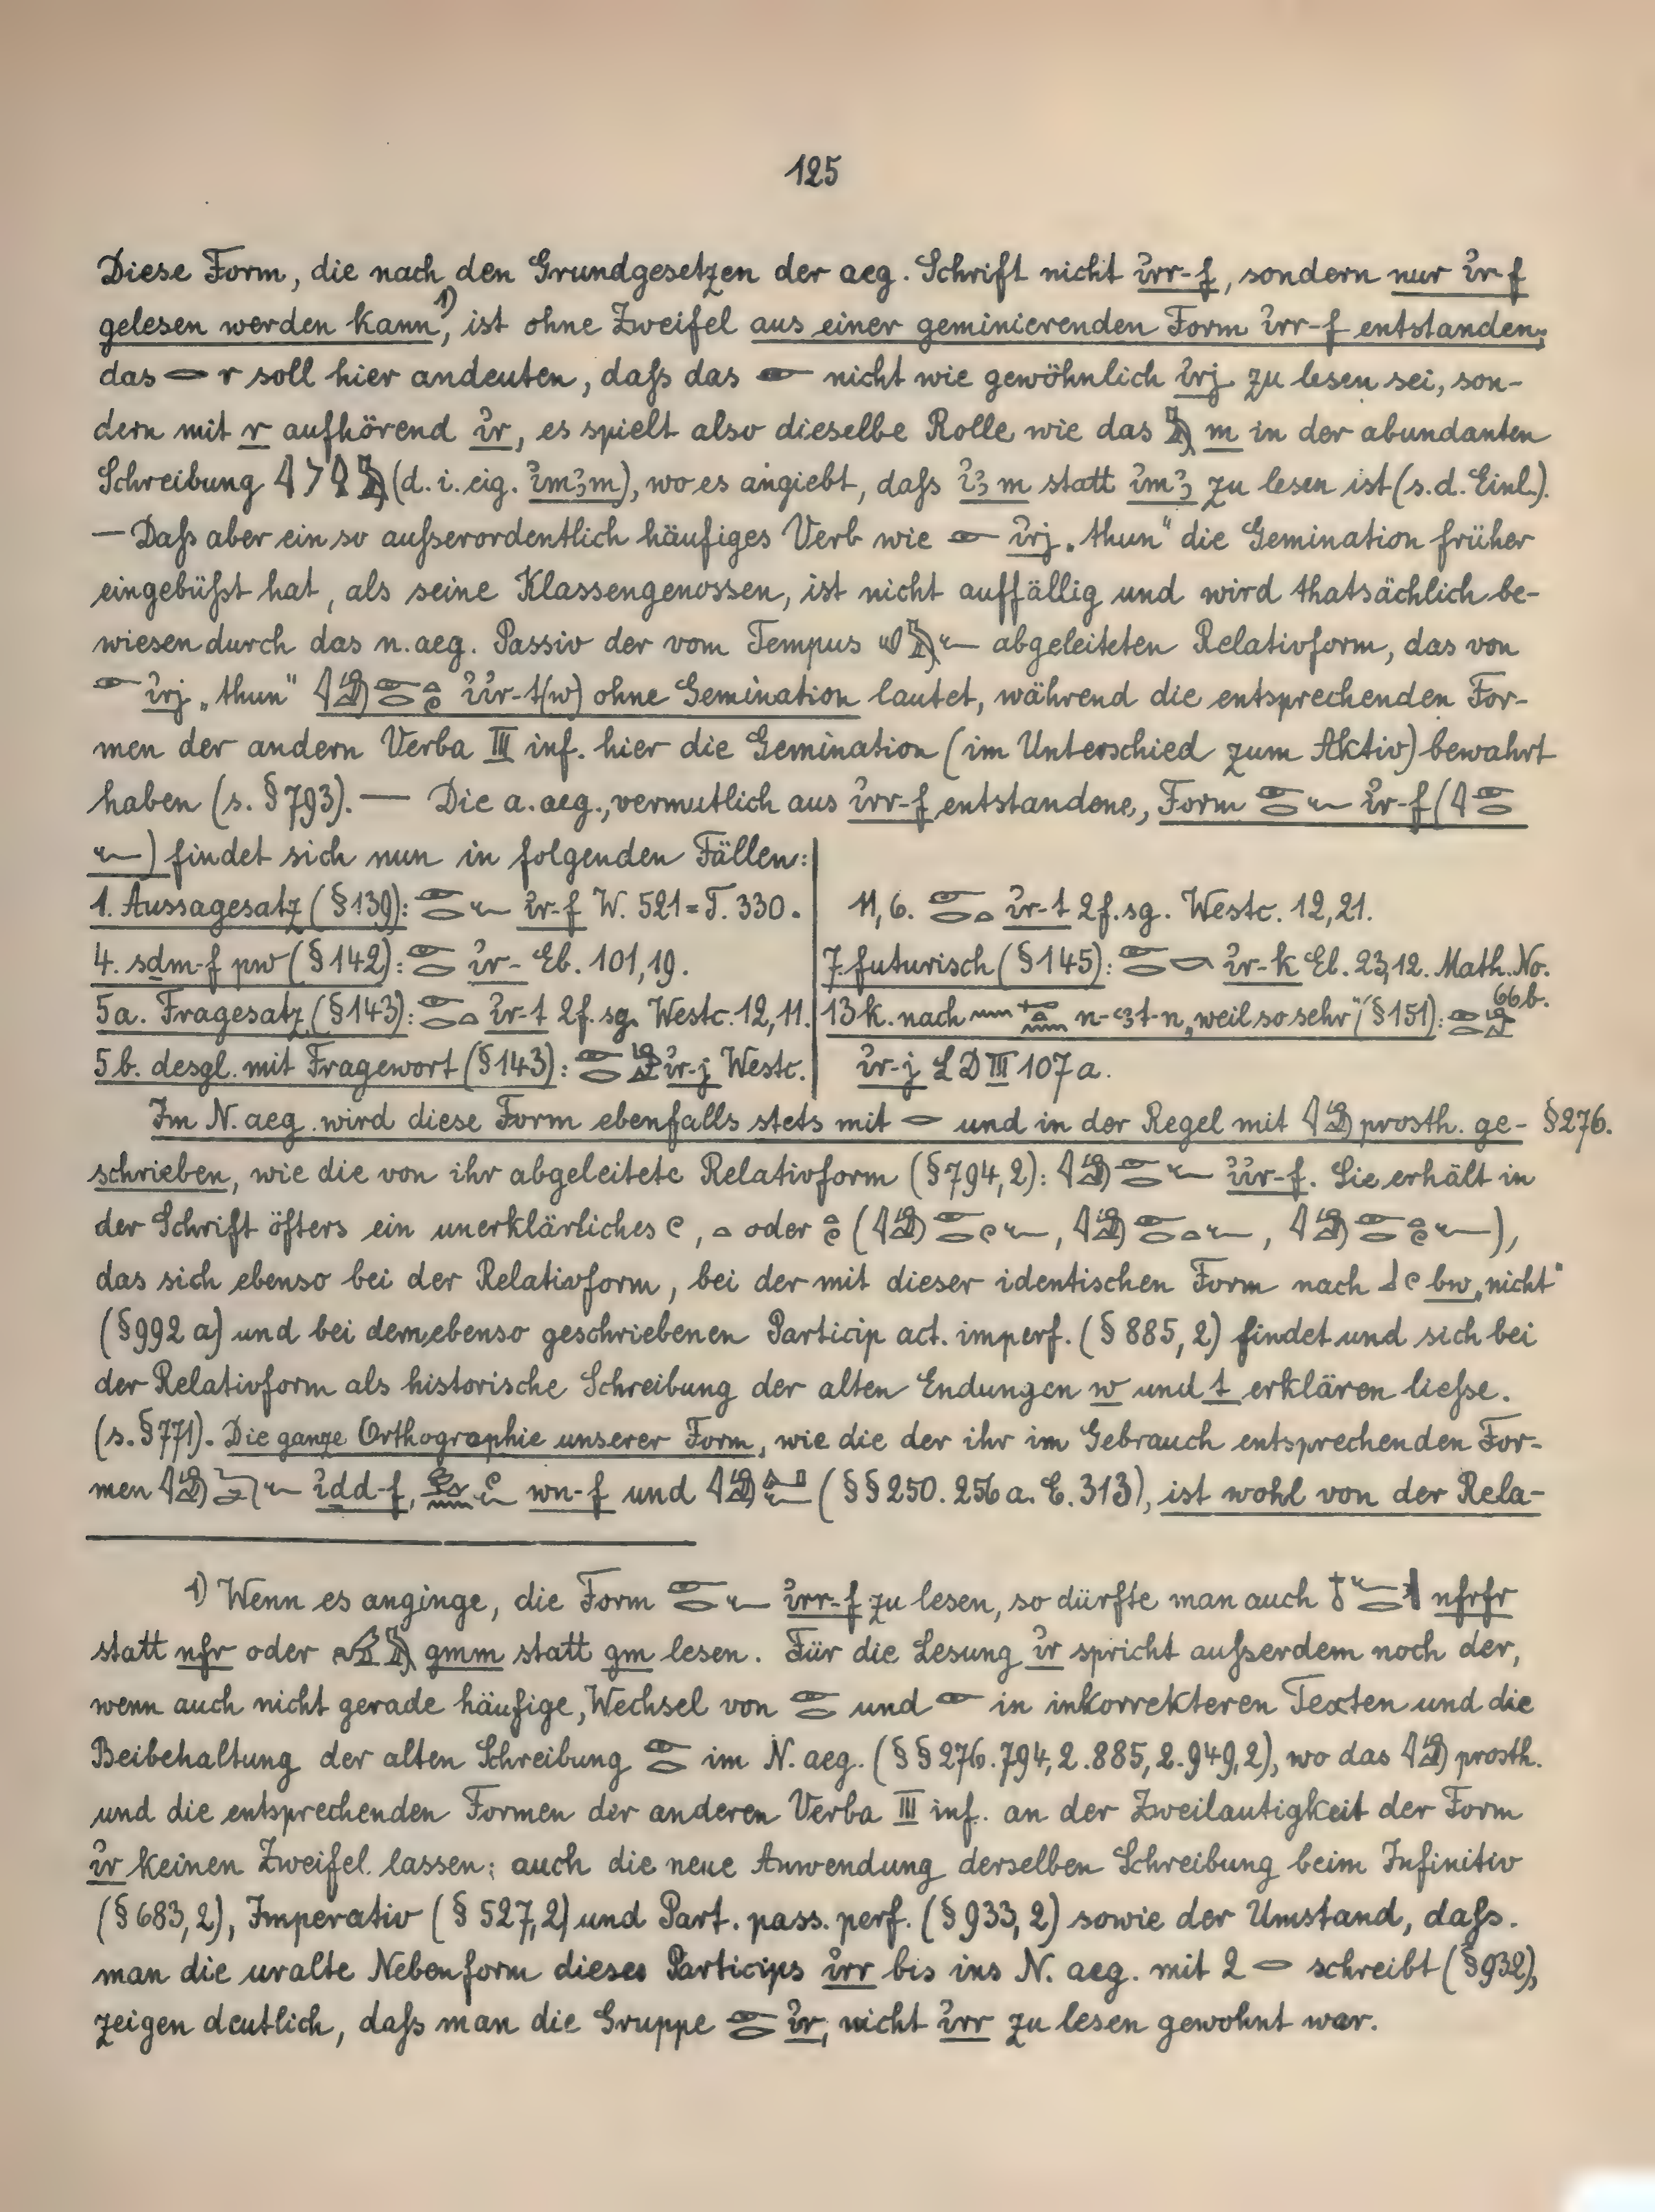 125
Diese Form, die nach den Grundgesetzen der aeg. Schrift nicht ı͗rr-f, sondern nur ı͗r-f
gelesen werden kann¹⁾, ist ohne Zweifel aus einer geminierenden Form ı͗rr-f entstanden;
das 𓂋 r soll hier andeuten, daſs das 𓁹 nicht wie gewöhnlich ı͗rj zu lesen sei, son-
dern mit r aufhörend ı͗r, es spielt also dieselbe Rolle wie das 𓅓 m in der abundanten
Schreibung (d. i. eig. ı͗mꜣm), wo es angiebt, daſs ı͗ꜣm statt ı͗mꜣ zu lesen ist (s. d. Einl.).
— Daſs aber ein so auſserordentlich häufiges Verb wie 𓁹 ı͗rj „thun" die Gemination früher
eingebüſst hat, als seine Klassengenossen, ist nicht auffällig und wird thatsächlich be-
wiesen durch das n. aeg. Passiv der vom Tempus abgeleiteten Relativform, das von
𓁹 ı͗rj „thun" 𓇋𓀁𓁹𓂋𓏏𓏲 ı͗ı͗r-t(w) ohne Gemination lautet, während die entsprechenden For-
men der andern Verba III inf. hier die Gemination (im Unterschied zum Aktiv) bewahrt
haben (s. § 793). — Die a. aeg., vermutlich aus ı͗rr-f entstandene, Form 𓁹𓂋𓆑 ı͗r-f (𓇋𓁹𓂋
𓆑) findet sich nun in folgenden Fällen:
1. Aussagesatz (§ 139): 𓁹𓂋𓆑 ı͗r-f W. 521 = T. 330.
4. sdm-f pw (§ 142): 𓁹𓂋 ı͗r- Eb. 101,19.
5a. Fragesatz (§ 143): 𓁹𓂋𓏏 ı͗r-t 2 f. sg. Westc. 12,11.
5b. desgl. mit Fragewort (§ 143): 𓁹𓂋 ı͗r-j Westc.
11,6. 𓁹𓂋𓏏 ı͗r-t 2 f. sg. Westc. 12,21.
7. futurisch (§ 145): 𓁹𓂋𓎡 ı͗r-k Eb. 23,12. Math. No.
66 b.
13 k. nach n-ꜥꜣt-n „weil so sehr" (§ 151): 𓁹𓂋
ı͗r-j LD III 107 a.
Im N. aeg. wird diese Form ebenfalls stets mit 𓂋 und in der Regel mit 𓇋𓀁 prosth. ge- § 276.
schrieben, wie die von ihr abgeleitete Relativform (§ 794, 2): 𓇋𓀁𓁹𓂋𓆑 ı͗ı͗r-f. Sie erhält in
der Schrift öfters ein unerklärliches 𓏲, 𓏏 oder 𓏏𓏲 (𓇋𓀁𓁹𓂋𓏲𓆑, 𓇋𓀁𓁹𓂋𓏏𓆑, 𓇋𓀁𓁹𓂋𓏏𓏲𓆑),
das sich ebenso bei der Relativform, bei der mit dieser identischen Form nach 𓃀𓏲 bw „nicht"
(§ 992 a) und bei dem ebenso geschriebenen Particip act. imperf. (§ 885, 2) findet und sich bei
der Relativform als historische Schreibung der alten Endungen w und t erklären lieſse.
(s. § 771). Die ganze Orthographie unserer Form, wie die der ihr im Gebrauch entsprechenden For-
men 𓇋𓀁𓆓𓂧𓆑 ı͗dd-f, wn-f und (§§ 250. 256 a. E. 313), ist wohl von der Rela-
¹⁾ Wenn es anginge, die Form 𓁹𓂋𓆑 ı͗rr-f zu lesen, so dürfte man auch 𓄤𓆑𓂋 nfrfr
statt nfr oder 𓅠𓅓 gmm statt gm lesen. Für die Lesung ı͗r spricht auſserdem noch der,
wenn auch nicht gerade häufige, Wechsel von 𓁹𓂋 und 𓁹 in inkorrekteren Texten und die
Beibehaltung der alten Schreibung 𓁹𓂋 im N. aeg. (§§ 276. 794, 2. 885, 2. 949, 2), wo das 𓇋𓀁 prosth.
und die entsprechenden Formen der anderen Verba III inf. an der Zweilautigkeit der Form
ı͗r keinen Zweifel lassen; auch die neue Anwendung derselben Schreibung beim Infinitiv
(§ 683, 2), Imperativ (§ 527, 2) und Part. pass. perf. (§ 933, 2) sowie der Umstand, daſs.
man die uralte Nebenform dieses Particips ı͗rr bis ins N. aeg. mit 2 𓂋 schreibt (§ 932),
zeigen deutlich, daſs man die Gruppe 𓁹𓂋 ı͗r, nicht ı͗rr zu lesen gewohnt war.